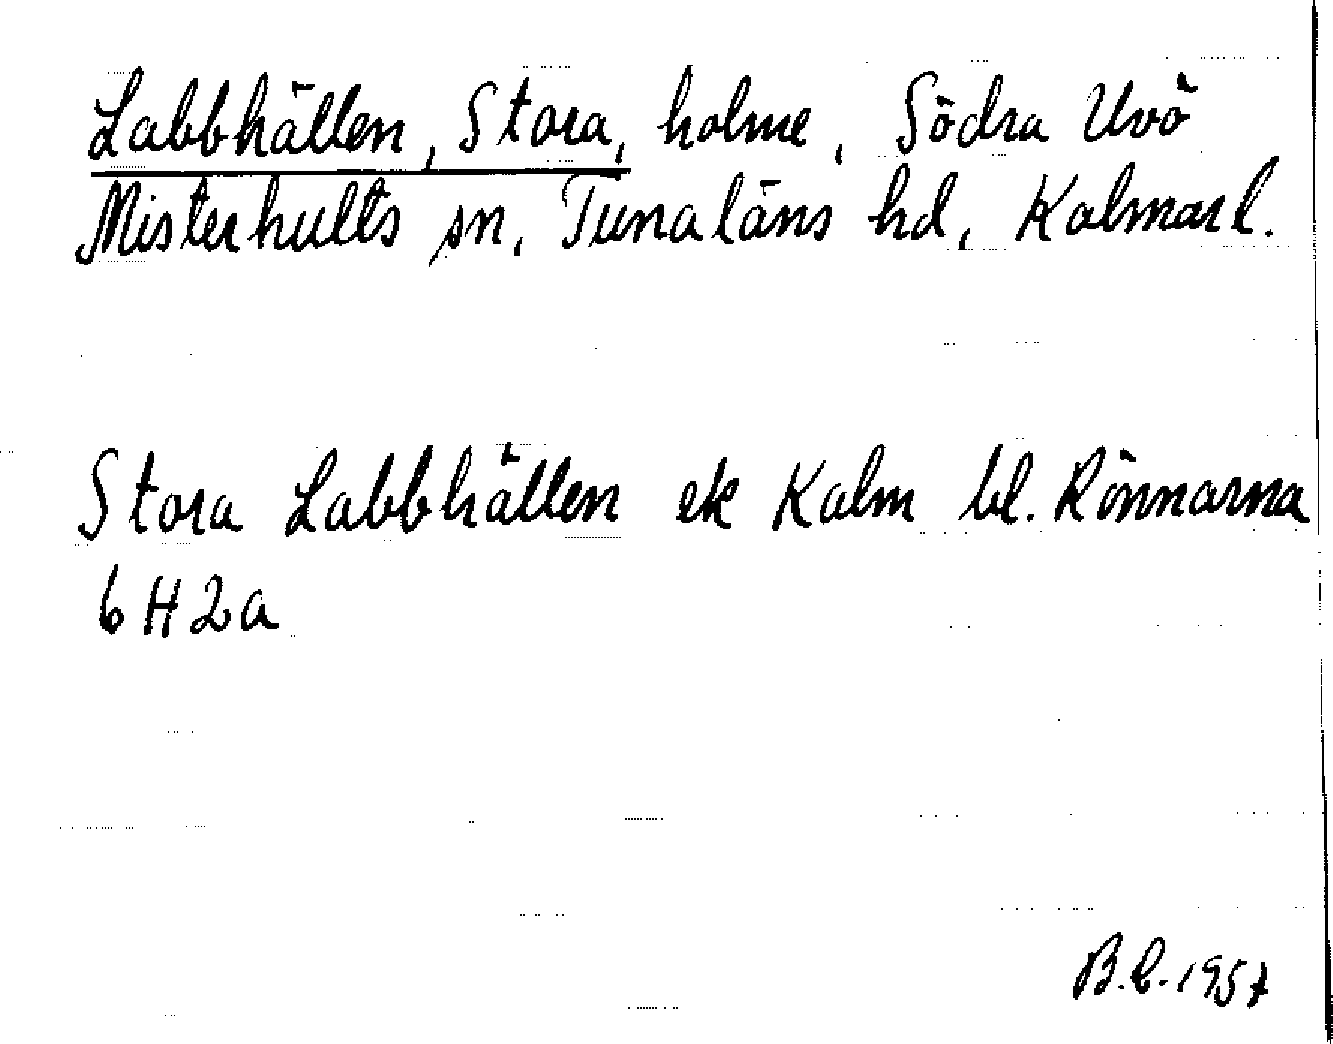 Labbhällen, Stora, holme, Södra Uvö
Misterhults sn, Tunaläns hd, Kalmar l.
Stora Labbhällen ek Kalm bl. Rönnarna
6 H 2 a
B.L. 1957